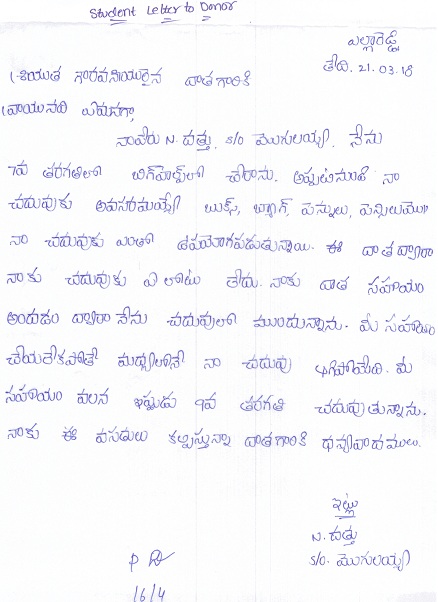 Student Letter to Donor
ఎల్లారెడ్డి
తేది. 21.03.18
శ్రీయుత గౌరవనీయులైన దాతగారికి
వ్రాయునది ఏమనగా,
నాపేరు N. దత్తు, S/o మొగులయ్య. నేను
7వ తరగతిలో బిగ్‌హెల్ప్‌లో చేరాను. అప్పటినుండి నా
చదువుకు అవసరమయ్యే బుక్స్, బ్యాగ్, పెన్నులు, పెన్సిలు
నా చదువుకు ఎంతో ఉపయోగపడుతున్నాయి. ఈ దాత ద్వారా
నాకు చదువుకు ఏ లోటు లేదు. నాకు దాత సహాయం
అందుడం ద్వారా నేను చదువులో ముందున్నాను. మీ సహాయం
చేయలేకపోతే మధ్యలోనే నా చదువు ఆగిపోయేది. మీ
సహాయం వలన ఇప్పుడు 9వ తరగతి చదువుతున్నాను.
నాకు ఈ వసతులు కల్పిస్తున్నా దాతగారికి ధన్యవాదములు.
ఇట్లు
N. దత్తు
S/o. మొగులయ్య
16/4